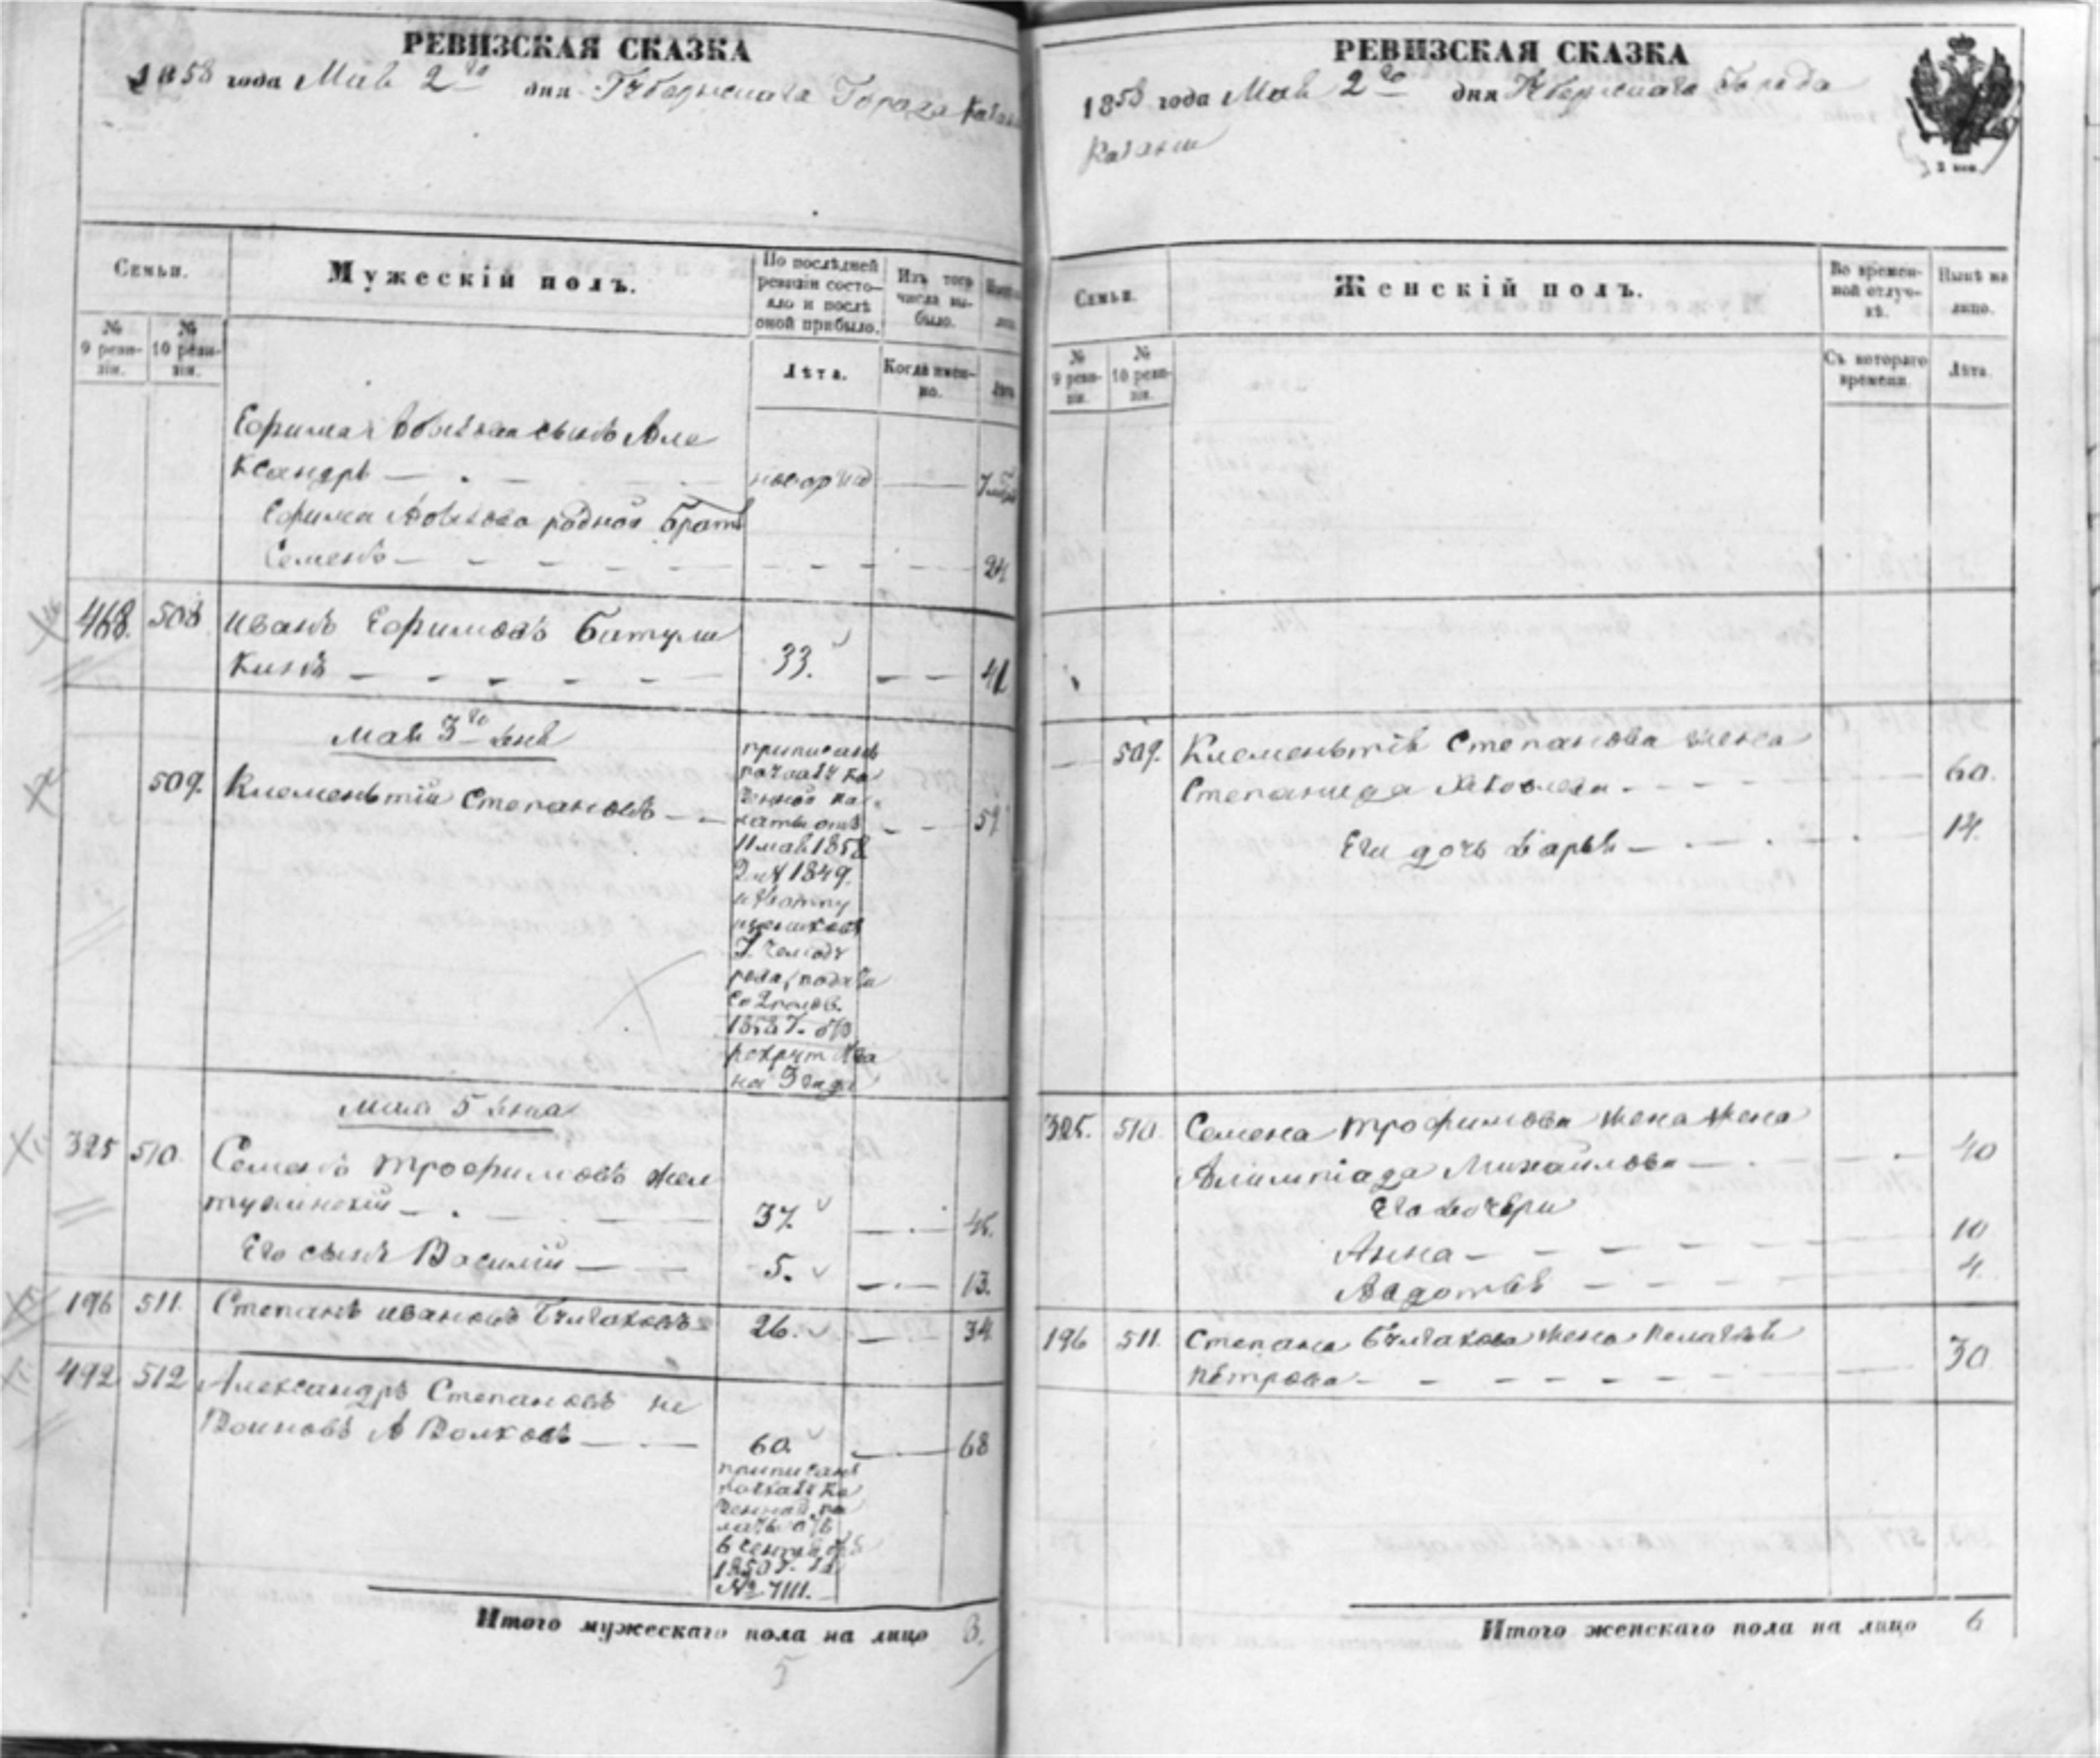 РЕВИЗСКАЯ СКАЗКА
1858 года Мая 2го дня Губернскаго Города Казани
Семьи.
Мужескій полъ.
По послѣдней ревизіи состояло и послѣ оной прибыло.
Изъ того числа выбыло.
№ 9 ревизіи.
№ 10 ревизіи.
Лѣта.
Когда именно.
Лѣта
Ефима сынъ Але
ксандръ — новорожд —
Ефима родной братъ
Семенъ — 24
468. 508 Иванъ Ефимовъ Батуш
кинъ — 33. — 41
Мая 3го дня
509. Клементій Степановъ — 59
приписанъ
по указу ка
зенной па
латы отъ
11 мая 1858
1849.
рода, подати
1858 г.
рекрутства
на 3 года
Мая 5 дня
325 510. Семенъ Трофимовъ Жел
тухинскій — 37. — 45.
Его сынъ Василій — 5. — 13.
196 511. Степанъ Ивановъ Булгаковъ 26. — 34
492 512 Александръ Степановъ не
Воиновъ А Волковъ — 60. — 68
приписанъ
по указу ка
зенной па
латы отъ
6 сентября
1850 г. за
№ 7111.
Итого мужескаго пола на лицо 8.
5
РЕВИЗСКАЯ СКАЗКА
1858 года Мая 2го дня Губернскаго Города
Казани
Семьи.
Женскій полъ.
Во временной отлучкѣ.
Нынѣ на лицо.
№ 9 ревизіи.
№ 10 ревизіи.
Съ котораго времени.
Лѣта.
— 509. Клементія Степанова жена
Степанида Яковлева — 60.
Его дочь Дарья — 14.
325. 510. Семена Трофимова жена жена
Алимпіада Михайлова — 40
Его дочери
Анна — 10
Авдотья — 4.
196 511. Степана Булгакова жена Пелагѣя
Петрова — 30
Итого женскаго пола на лицо 6